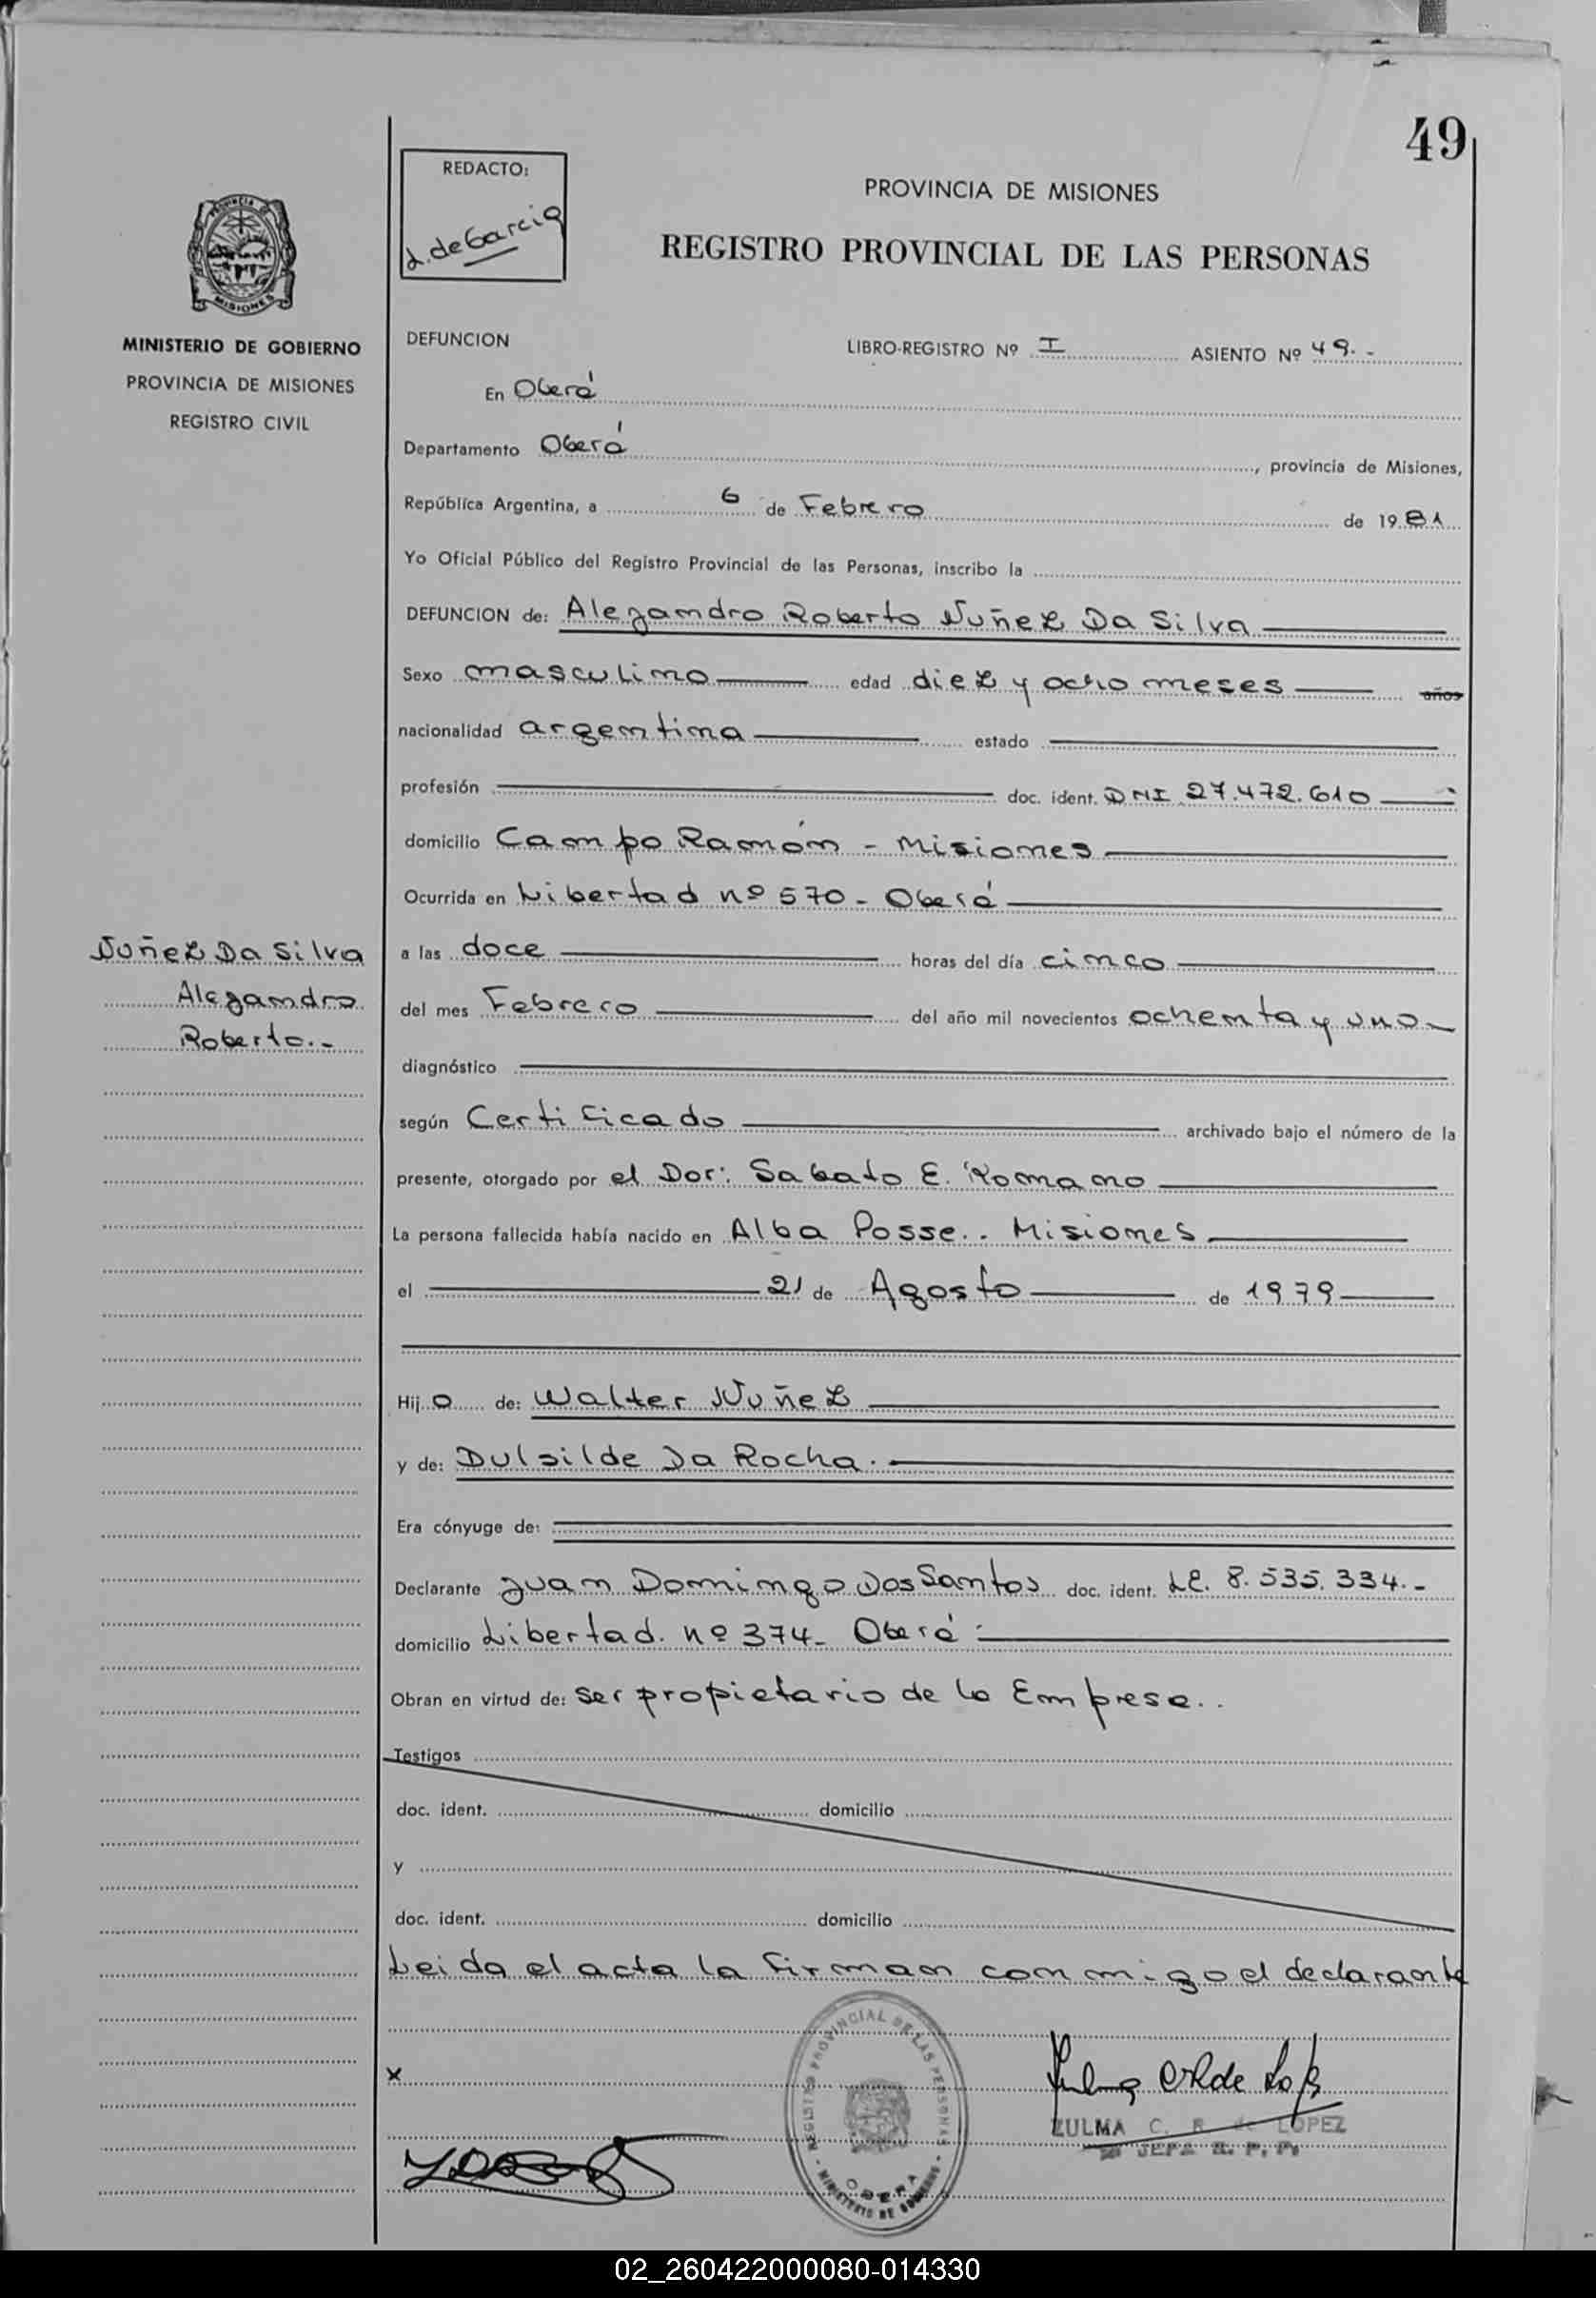 49
REDACTO:
L. de Garcia
PROVINCIA DE MISIONES
REGISTRO PROVINCIAL DE LAS PERSONAS
PROVINCIA DE
MISIONES
MINISTERIO DE GOBIERNO
PROVINCIA DE MISIONES
REGISTRO CIVIL
DEFUNCION LIBRO-REGISTRO Nº I ASIENTO Nº 49.-
En Oberá
Departamento Oberá, provincia de Misiones,
República Argentina, a 6 de Febrero de 1981
Yo Oficial Público del Registro Provincial de las Personas, inscribo la
DEFUNCION de: Alejandro Roberto Nuñez Da Silva
Sexo masculino edad diez y ocho meses años
nacionalidad argentina estado
profesión doc. ident. DNI 27.472.610
domicilio Campo Ramón - Misiones
Ocurrida en Libertad nº 570 - Oberá
Nuñez Da Silva
Alejandro
Roberto.-
a las doce horas del día cinco
del mes Febrero del año mil novecientos ochenta y uno-
diagnóstico
según Certificado archivado bajo el número de la
presente, otorgado por el Dor: Sabato E. Romano
La persona fallecida había nacido en Alba Posse.. Misiones
el 21 de Agosto de 1979
Hijo de: Walter Nuñez
y de: Dulsilde Da Rocha.
Era cónyuge de:
Declarante Juan Domingo Dos Santos doc. ident. LE. 8.535.334.-
domicilio Libertad. nº 374- Oberá
Obran en virtud de: ser propietario de la Empresa..
Testigos
doc. ident. domicilio
y
doc. ident. domicilio
Leida el acta la firman conmigo el declarante
x
REGISTRO PROVINCIAL DE LAS PERSONAS
OBERA
MINISTERIO DE GOBIERNO
ZULMA C. R. de LOPEZ
JEFA R. P. P.
02_260422000080-014330